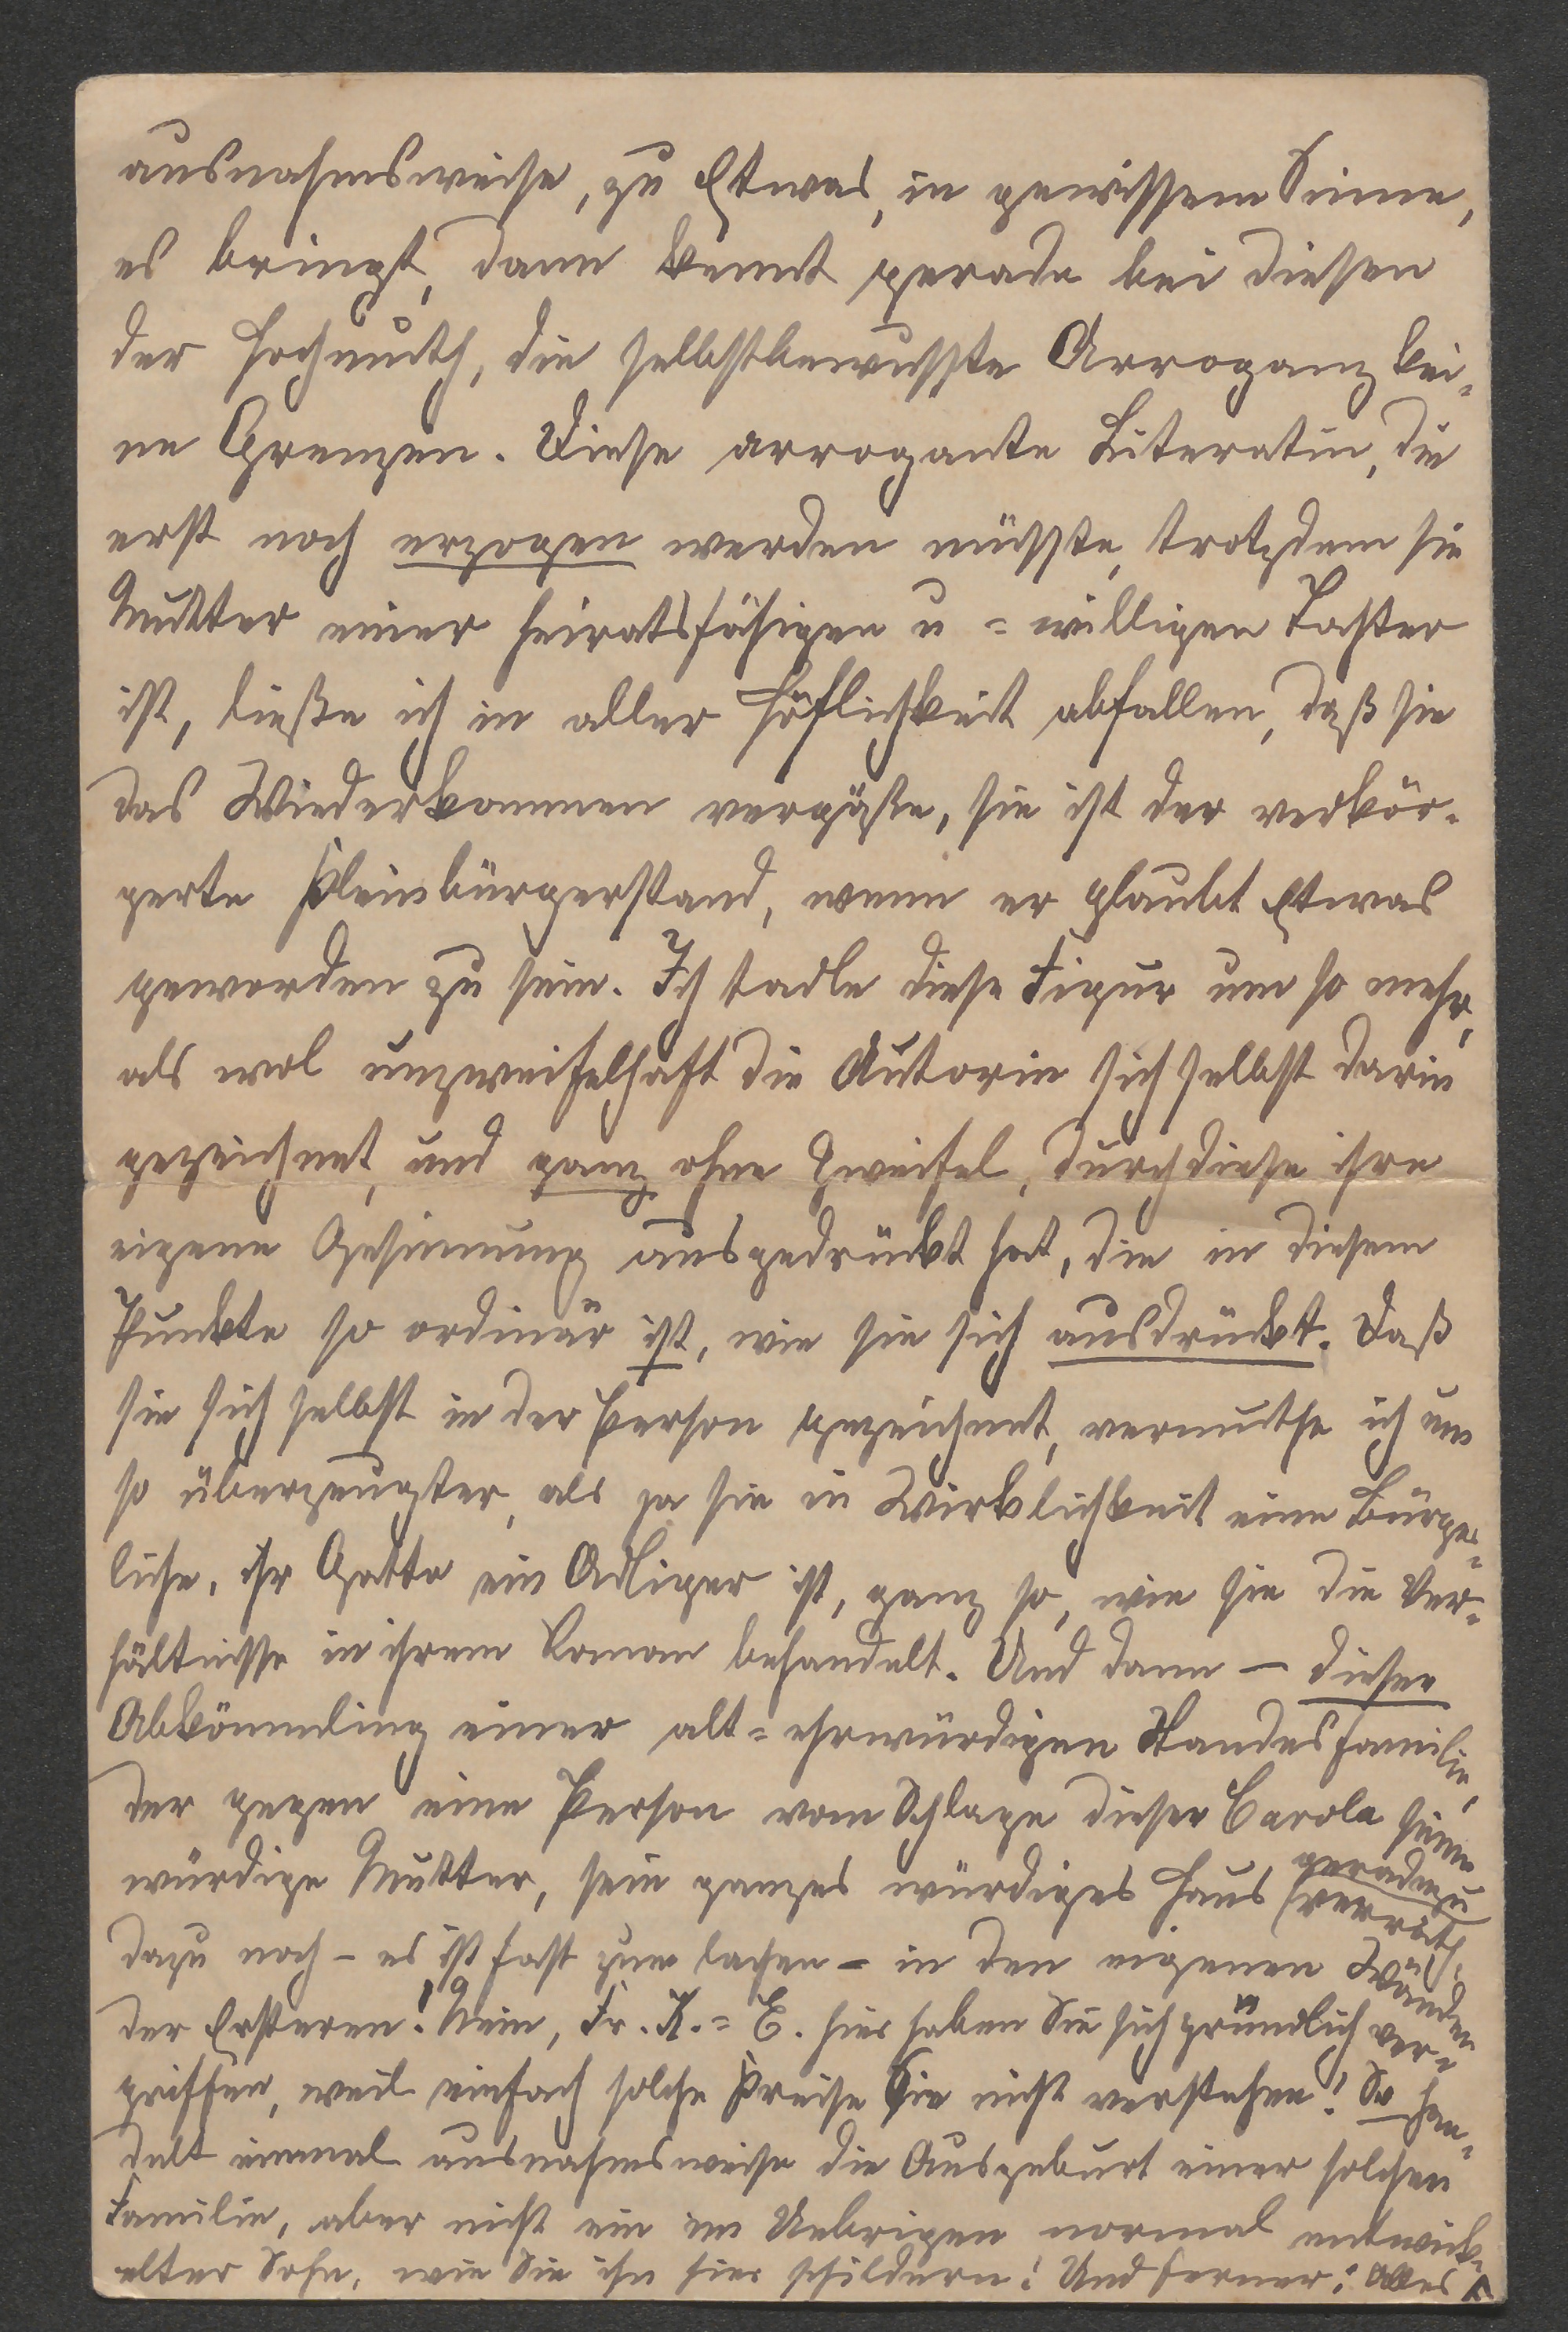 ausnahmsweise, zu Etwas, in gewissem Sinne,
es bringt, dann kennt gerade bei diesen
der Hochmuth, die selbstbewusste Arroganz kei-
ne Grenzen. Diese arrogante Literatin, die
erst noch erzogen werden müsste, trotzdem sie
Mutter einer heiratsfähigen u = willigen Tochter
ist, ließe ich in aller Höflichkeit abfallen, daß sie
das Wiederkommen vergäße, sie ist der verkör-
perte Kleinbürgerstand, wenn er glaubt Etwas
geworden zu sein. Ich tadle diese Figur um so mehr,
als wol unzweifelhaft die Autorin sich selbst darin
gezeichnet, und ganz ohne Zweifel, durch diese ihre
eigene Gesinnung ausgedrückt hat, die in diesem
Punkte so ordinär ist, wie sie sich ausdrückt. Daß
sie sich selbst in der Person gezeichnet, vermuthe ich um
so überzeugter, als ja sie in Wirklichkeit eine Bürger-
liche, ihr Gatte ein Adliger ist, ganz so, wie sie die Ver-
hältnisse in ihrem Roman behandelt. Und dann — dieser
Abkömmling einer alt=ehrwürdigen Standesfamilie,
der gegen eine Person vom Schlage dieser Carola seine
würdige Mutter, sein ganzes würdiges Haus geradezu verräth,
dazu noch - es ist fast zum lachen - in den eigenen Wänden
der Ersteren! Nein, Fr. K.= E. hier haben Sie sich gründlich ver-
griffen, weil einfach solche Kreise Sie nicht verstehen! So han-
delt einmal ausnahmsweise die Ausgeburt einer solchen
Familie, aber nicht ein im Uebrigen normal entwick-
elter Sohn, wie Sie ihn hier schildern! Und ferner: Alles